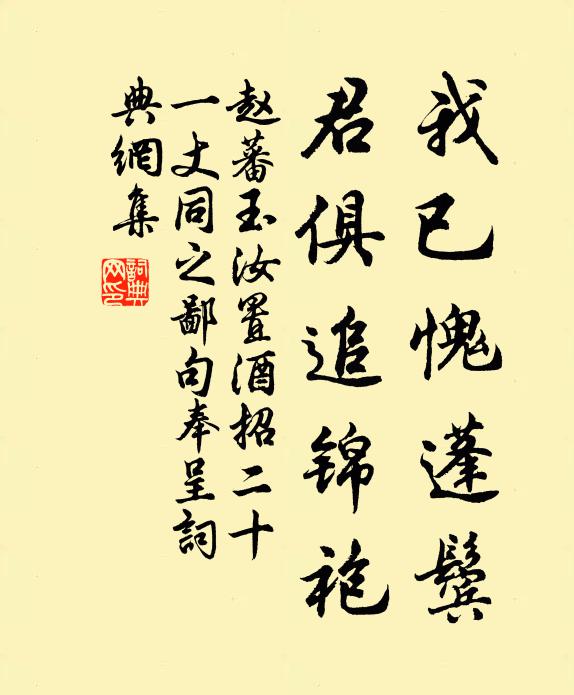 我已愧蓬鬓
君俱追锦袍
赵蕃玉汝置酒招二十
一丈同之鄙句奉呈詞
典網集
詞典網印